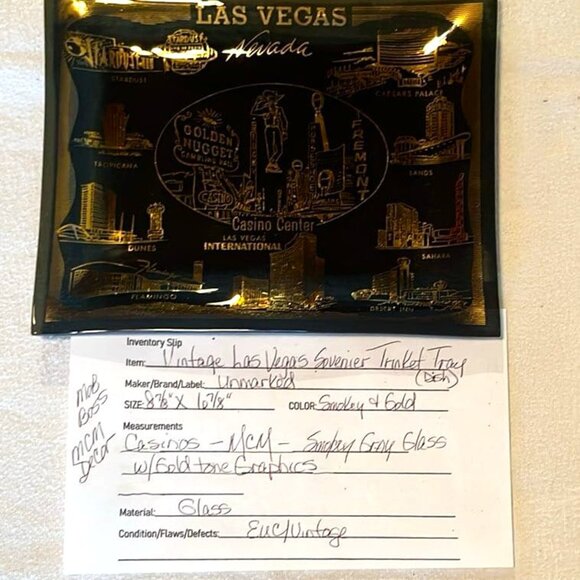 LAS VEGAS
Nevada
STARDUST
STARDUST
CAESARS PALACE
GOLDEN
NUGGET
GAMBLING HALL
CASINO
FREMONT
TROPICANA
SANDS
Casino Center
LAS VEGAS
INTERNATIONAL
DUNES
SAHARA
FLAMINGO
DESERT INN
Inventory Slip
Item: Vintage Las Vegas Sovenier Trinket Tray
(Dish)
Maker/Brand/Label: Unmarked
SIZE: 8 7/8" X 10 7/8" COLOR: Smokey & Gold
Mob
Boss
MCM
Decor
Measurements
Casinos - MCM - Smokey Gray Glass
w/Gold tone Graphics
Material: Glass
Condition/Flaws/Defects: EUC/Vintage